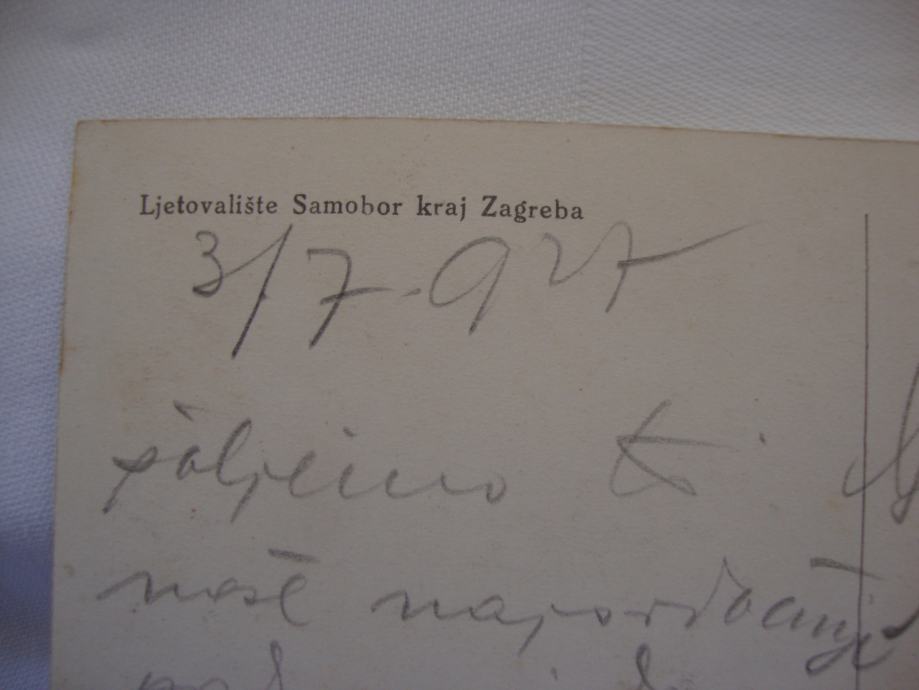 Ljetovalište Samobor kraj Zagreba
3/7-927
šaljemo ti
naše najsrdačnije